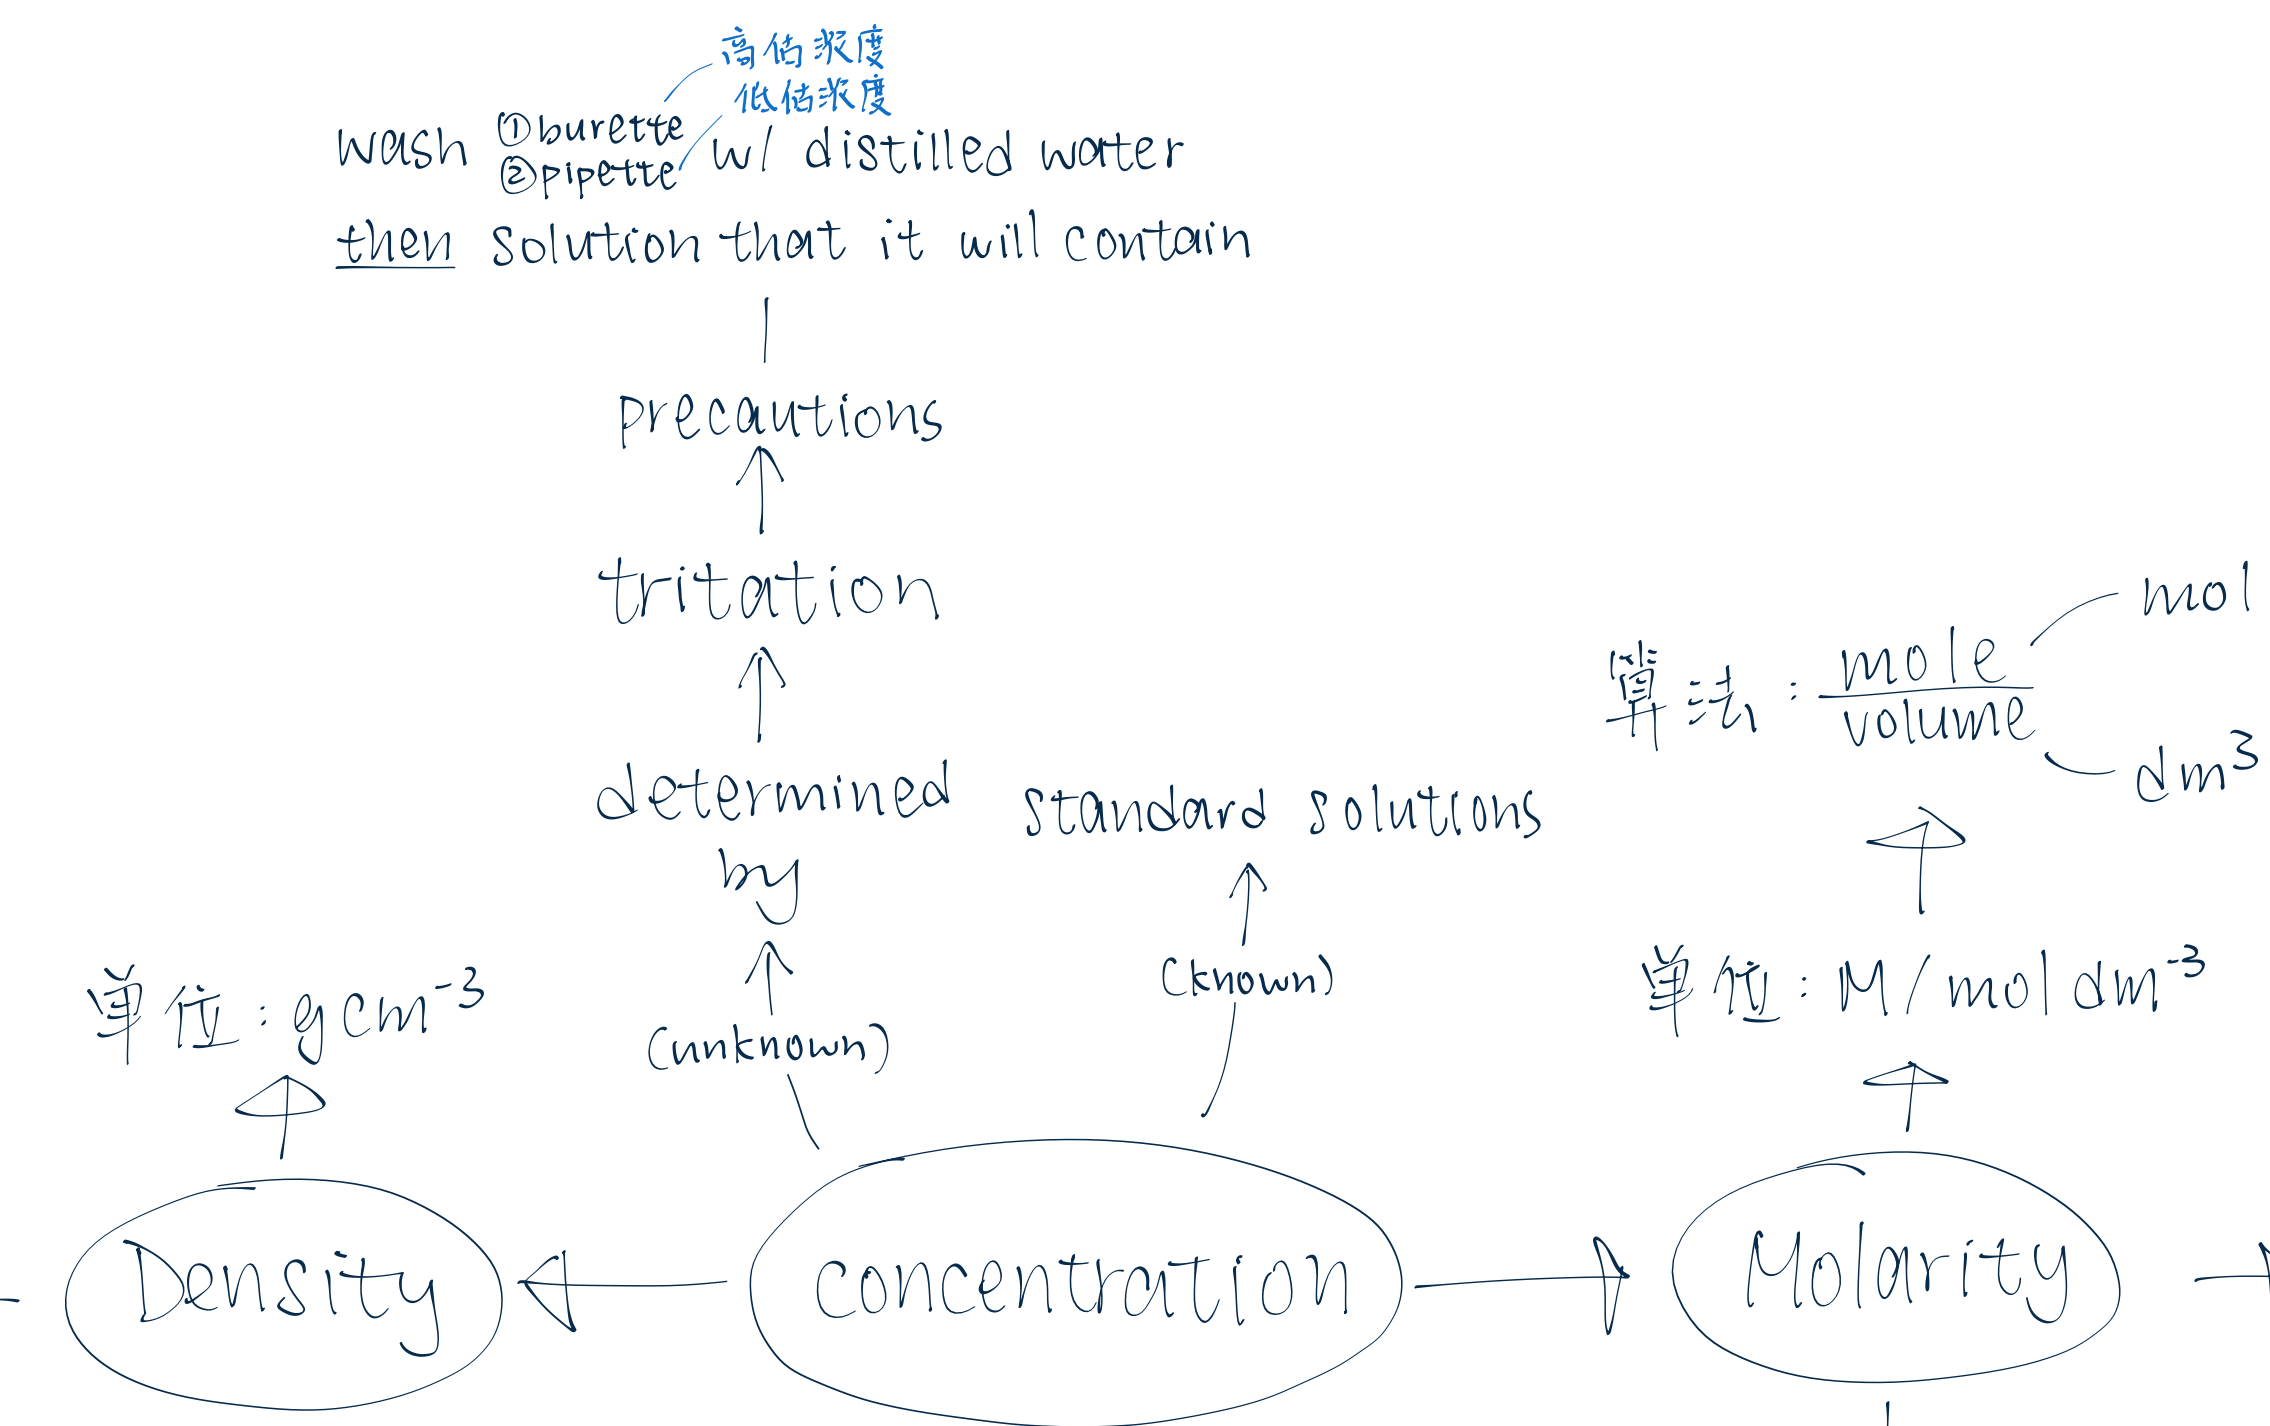 高估浓度
低估浓度
wash ①burette ②pipette w/ distilled water
then solution that it will contain
precautions
tritation
determined
by
(unknown)
standard solutions
(known)
算法: mole/volume
mol
dm³
单位: g cm⁻³
单位: M/mol dm⁻³
Density
Concentration
Molarity